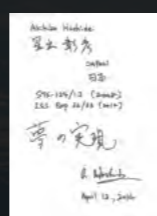 Akihiko Hoshide
星出 彰彦
Japan
日本
STS-124/1J (2008)
ISS Exp 32/33 (2012)
夢の実現
A. Hoshide
April 12, 2016